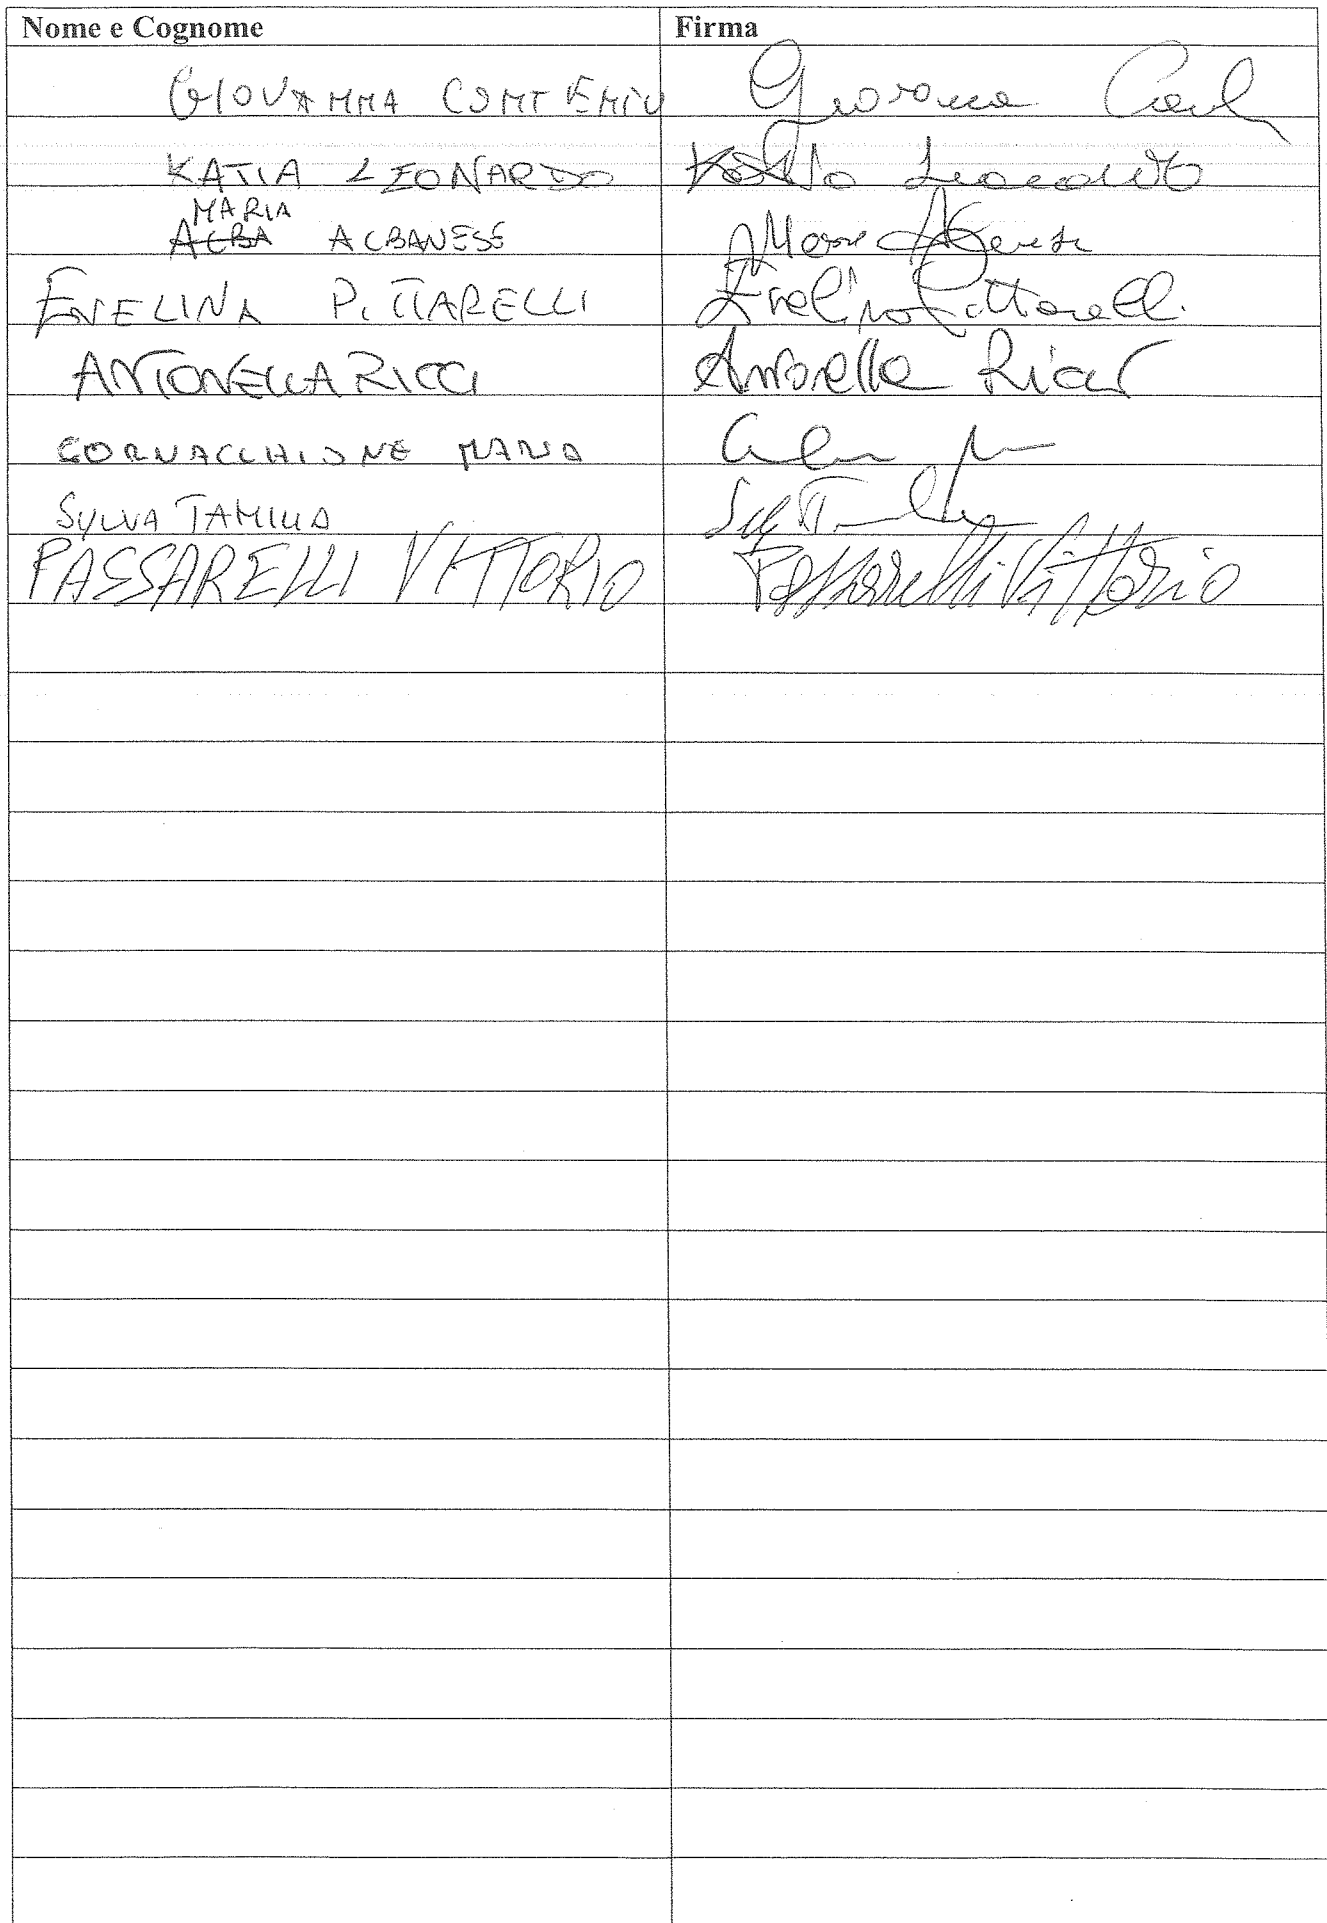 Nome e Cognome Firma
GIOVANNA Giovanna
KATIA LEONARDO Katia Leonardo
MARIA
ALBA ALBANESE
EVELINA PITTARELLI Evelina Pittarelli
ANTONELLA RICCI Antonella Ricci
CORNACCHIONE MARIA
SYLVA TAMILIA
PASSARELLI VITTORIO Passarelli Vittorio